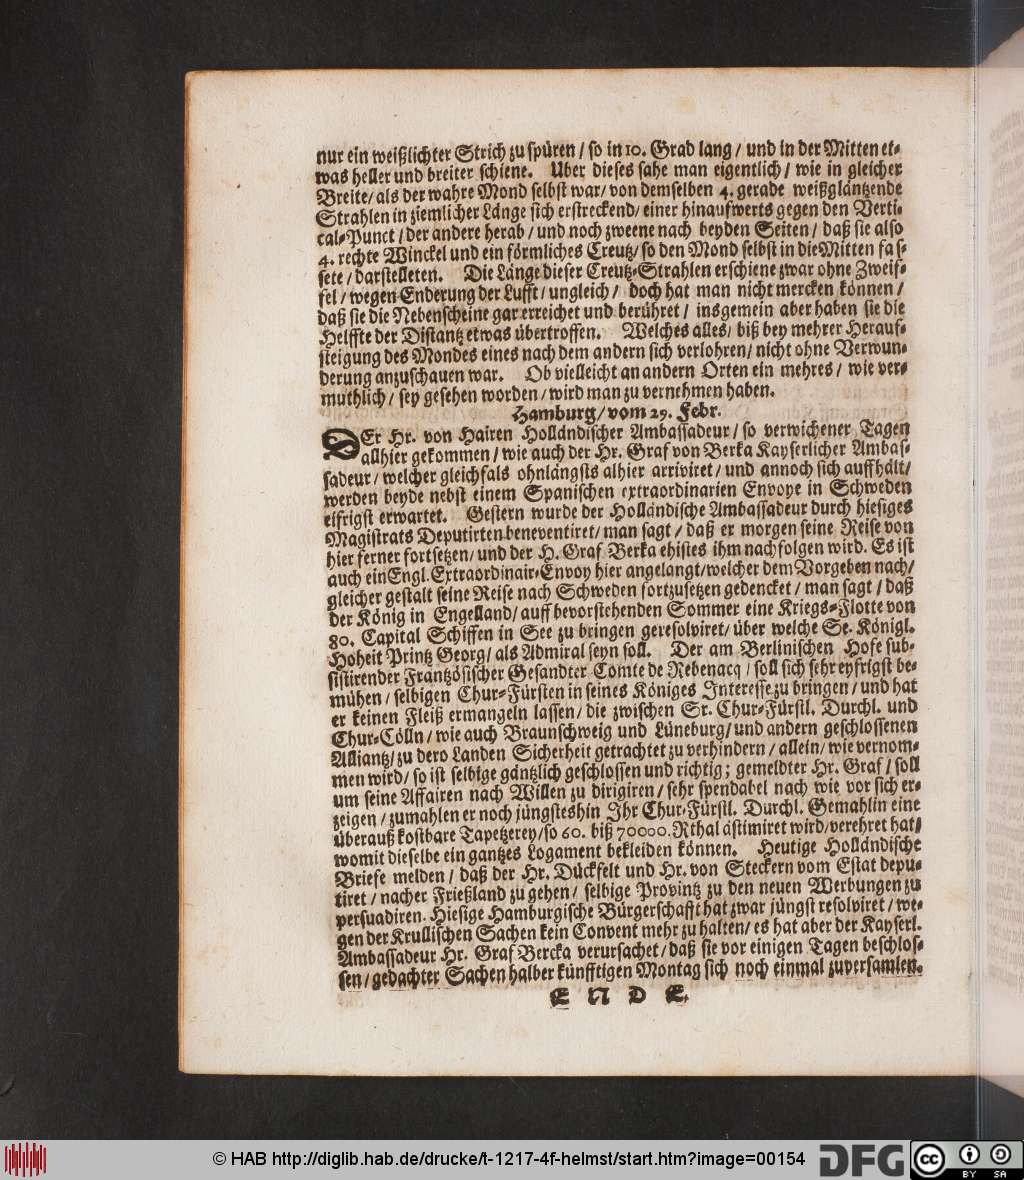 nur ein weißlichter Strich zu spüren / so in 10. Grad lang / und in der Mitten et-
was heller und breiter schiene. Uber dieses sahe man eigentlich / wie in gleicher
Breite / als der wahre Mond selbst war / von demselben 4. gerade weißgläntzende
Strahlen in ziemlicher Länge sich erstreckend / einer hinaufwerts gegen den Verti-
cal-Punct / der andere herab / und noch zweene nach beyden Seiten / daß sie also
4. rechte Winckel und ein förmliches Creutz / so den Mond selbst in die Mitten fas-
sete / darstelleten. Die Länge dieser Creutz-Strahlen erschiene zwar ohne Zweif-
fel / wegen Enderung der Lufft / ungleich / doch hat man nicht mercken können /
daß sie die Nebenscheine gar erreichet und berühret / insgemein aber haben sie die
Helffte der Distantz etwas übertroffen. Welches alles / biß bey mehrer Herauf-
steigung des Mondes eines nach dem andern sich verlohren / nicht ohne Verwun-
derung anzuschauen war. Ob vielleicht an andern Orten ein mehres / wie ver-
muthlich / sey gesehen worden / wird man zu vernehmen haben.
Hamburg / vom 29. Febr.
DEr Hr. von Hairen Holländischer Ambassadeur / so verwichener Tagen
allhier gekommen / wie auch der Hr. Graf von Berka Kayserlicher Ambas-
sadeur / welcher gleichfals ohnlängsts alhier arriviret / und annoch sich auffhält /
werden beyde nebst einem Spanischen extraordinarien Envoye in Schweden
eifrigst erwartet. Gestern wurde der Holländische Ambassadeur durch hiesiges
Magistrats Deputirten beneventiret / man sagt / daß er morgen seine Reise von
hier ferner fortsetzen / und der H. Graf Berka ehistes ihm nachfolgen wird. Es ist
auch ein Engl. Extraordinair-Envoy hier angelangt / welcher dem Vorgeben nach /
gleicher gestalt seine Reise nach Schweden fortzusetzen gedencket / man sagt / daß
der König in Engelland / auff bevorstehenden Sommer eine Kriegs-Flotte von
80. Capital Schiffen in See zu bringen geresolviret / über welche Se. Königl.
Hoheit Printz Georg / als Admiral seyn soll. Der am Berlinischen Hofe sub-
sistirender Frantzösischer Gesandter Comte de Rebenacq / soll sich sehr eyfrigst be-
mühen / selbigen Chur-Fürsten in seines Königes Interesse zu bringen / und hat
er keinen Fleiß ermangeln lassen / die zwischen Sr. Chur-Fürstl. Durchl. und
Chur-Cölln / wie auch Braunschweig und Lüneburg / und andern geschlossenen
Alliantz / zu dero Landen Sicherheit getrachtet zu verhindern / allein / wie vernom-
men wird / so ist selbige gäntzlich geschlossen und richtig; gemeldter Hr. Graf / soll
um seine Affairen nach Willen zu dirigiren / sehr spendabel nach wie vor sich er-
zeigen / zumahlen er noch jüngsteshin Ihr Chur-Fürstl. Durchl. Gemahlin eine
überauß kostbare Tapetzerey / so 60. biß 70000. Rthal ästimiret wird / verehret hat /
womit dieselbe ein gantzes Logament bekleiden können. Heutige Holländische
Briefe melden / daß der Hr. Dückfelt und Hr. von Steckern vom Estat depu-
tiret / nacher Frießland zu gehen / selbige Provintz zu den neuen Werbungen zu
persuadiren. Hiesige Hamburgische Bürgerschafft hat zwar jüngst resolviret / we-
gen der Krullischen Sachen kein Convent mehr zu halten / es hat aber der Kayserl.
Ambassadeur Hr. Graf Bercka verursachet / daß sie vor einigen Tagen beschlos-
sen / gedachter Sachen halber künfftigen Montag sich noch einmal zuversamlen.
E N D E.
© HAB http://diglib.hab.de/drucke/t-1217-4f-helmst/start.htm?image=00154
DFG
cc BY SA